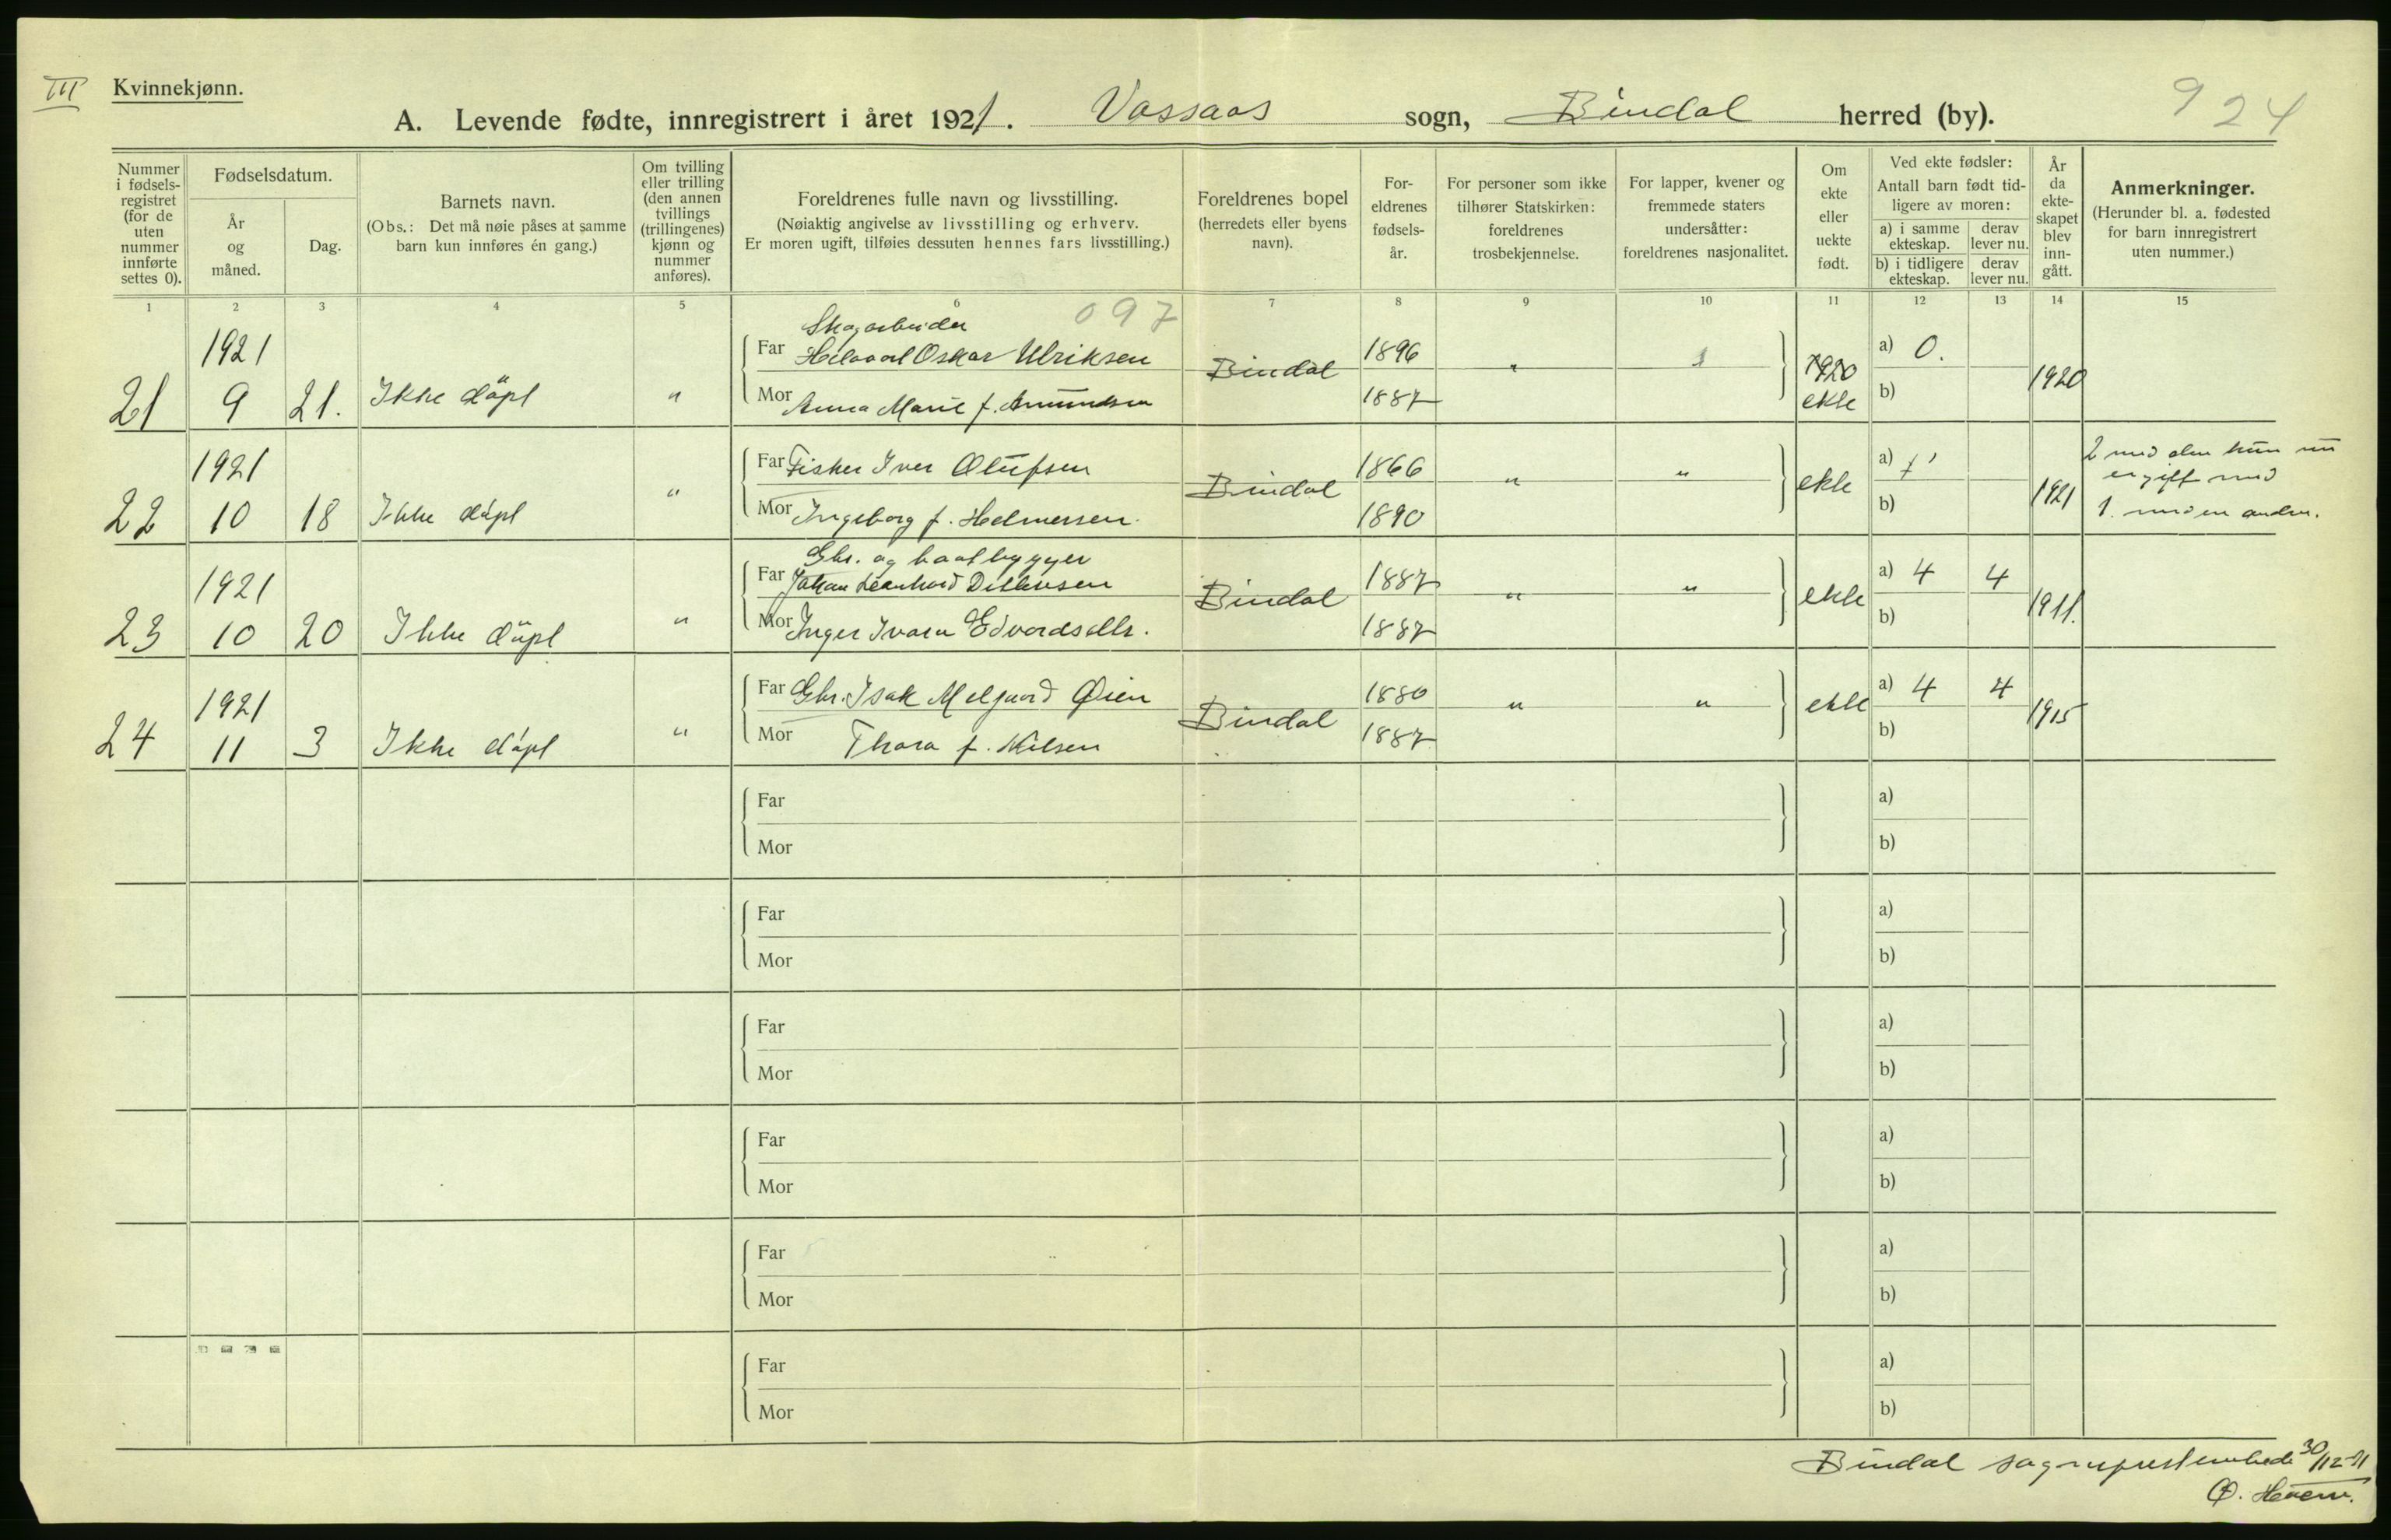 III Kvinnekjønn.
A. Levende fødte, innregistrert i året 1921. Vassaas sogn, Bindal herred (by). 924
Nummer i fødsels-registret (for de uten nummer innførte settes 0).
Fødselsdatum.
År og måned.
Dag.
Barnets navn.
(Obs.: Det må nøie påses at samme barn kun innføres én gang.)
Om tvilling eller trilling (den annen tvillings (trillingenes) kjønn og nummer anføres).
Foreldrenes fulle navn og livsstilling.
(Nøiaktig angivelse av livsstilling og erhverv.
Er moren ugift, tilføies dessuten hennes fars livsstilling.)
Foreldrenes bopel (herredets eller byens navn).
For-eldrenes fødsels-år.
For personer som ikke tilhører Statskirken: foreldrenes trosbekjennelse.
For lapper, kvener og fremmede staters undersåtter: foreldrenes nasjonalitet.
Om ekte eller uekte født.
Ved ekte fødsler:
Antall barn født tid-ligere av moren:
a) i samme ekteskap. derav lever nu.
b) i tidligere ekteskap. derav lever nu.
År da ekte-skapet blev inn-gått.
Anmerkninger.
(Herunder bl. a. fødested for barn innregistrert uten nummer.)
1 2 3 4 5 6 7 8 9 10 11 12 13 14 15
097
Skogarbeider
1921 Far Oskar Ulriksen Bindal 1896 " 1920 a) 0. 1920
21 9 21. Ikke döpt " Mor Anna Marie f. Amundsen 1887 ekte b)
1921 Far Fisker Iver Olufsen Bindal 1866 " " ekte a) 1921 2 med den hun nu
er gift med
22 10 18 Ikke döpt " Mor Ingeborg f. Helmersen. 1890 b) 1. med en anden.
Gbr. og baatbygger
1921 Far Johan Leonhard Ditlevsen Bindal 1887 " " ekte a) 4 4 1911.
23 10 20 Ikke döpt " Mor Inger Ivara Edvardsdtr. 1887 b)
1921 Far Gbr. Isak Melgaard Øien Bindal 1880 " " ekte a) 4 4 1915
24 11 3 Ikke döpt " Mor Thora f. Nilsen 1887 b)
Far a)
Mor b)
Far a)
Mor b)
Far a)
Mor b)
Far a)
Mor b)
Far a)
Mor b)
Far a)
Mor b)
Bindal sogneprestembede 30/12-21